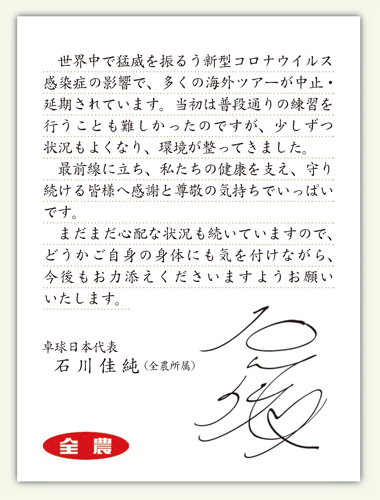 世界中で猛威を振るう新型コロナウイルス
感染症の影響で、多くの海外ツアーが中止・
延期されています。当初は普段通りの練習を
行うことも難しかったのですが、少しずつ
状況もよくなり、環境が整ってきました。
最前線に立ち、私たちの健康を支え、守り
続ける皆様へ感謝と尊敬の気持ちでいっぱい
です。
まだまだ心配な状況も続いていますので、
どうかご自身の身体にも気を付けながら、
今後もお力添えくださいますようお願い
いたします。
卓球日本代表
石川佳純(全農所属)
全農